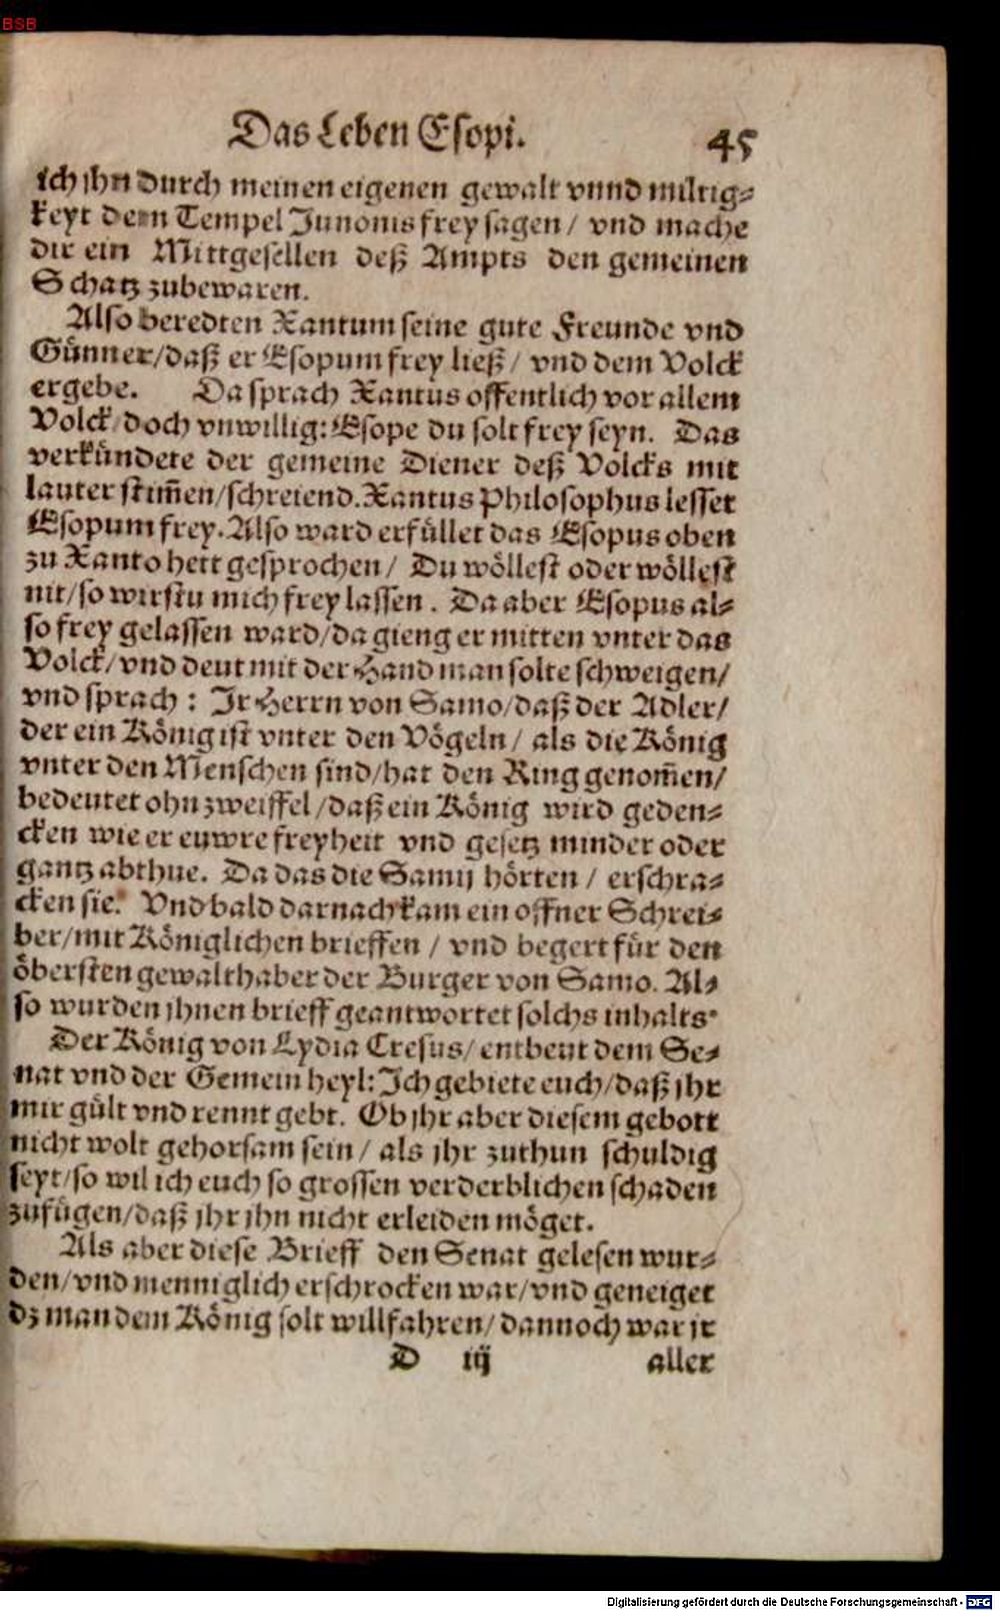 BSB
Das Leben Esopi. 45
ich jhn durch meinen eigenen gewalt vnnd miltig⸗
keyt dem Tempel Junonis frey sagen / vnd mache
dir ein Mittgesellen deß Ampts den gemeinen
Schatz zubewaren.
Also beredten Xantum seine gute Freunde vnd
Günner/daß er Esopum frey ließ / vnd dem Volck
ergebe. Da sprach Xantus offentlich vor allem
Volck/doch vnwillig: Esope du solt frey seyn. Das
verkündete der gemeine Diener deß Volcks mit
lauter stim̃en/schreiend. Xantus Philosophus lesset
Esopum frey. Also ward erfüllet das Esopus oben
zu Xanto hett gesprochen / Du wöllest oder wöllest
nit/so wirstu mich frey lassen. Da aber Esopus al⸗
so frey gelassen ward/da gieng er mitten vnter das
Volck/vnd deut mit der Hand man solte schweigen/
vnd sprach : Ir Herrn von Samo/daß der Adler/
der ein König ist vnter den Vögeln/ als die König
vnter den Menschen sind/hat den Ring genom̃en/
bedeutet ohn zweiffel/daß ein König wird geden⸗
cken wie er euwre freyheit vnd gesetz minder oder
gantz abthue. Da das die Samij hörten / erschra⸗
cken sie. Vnd bald darnach kam ein offner Schrei⸗
ber/mit Königlichen brieffen / vnd begert für den
öbersten gewalthaber der Burger von Samo. Al⸗
so wurden jhnen brieff geantwortet solchs inhalts.
Der König von Lydia Cresus/ entbeut dem Se⸗
nat vnd der Gemein heyl: Ich gebiete euch/daß jhr
mir gült vnd rennt gebt. Ob jhr aber diesem gebott
nicht wolt gehorsam sein / als jhr zuthun schuldig
seyt/so wil ich euch so grossen verderblichen schaden
zufügen/daß jhr jhn nicht erleiden möget.
Als aber diese Brieff den Senat gelesen wur⸗
den/vnd menniglich erschrocken war/vnd geneiget
dz man dem König solt willfahren/ dannoch war jr
D iij aller
Digitalisierung gefördert durch die Deutsche Forschungsgemeinschaft - DFG